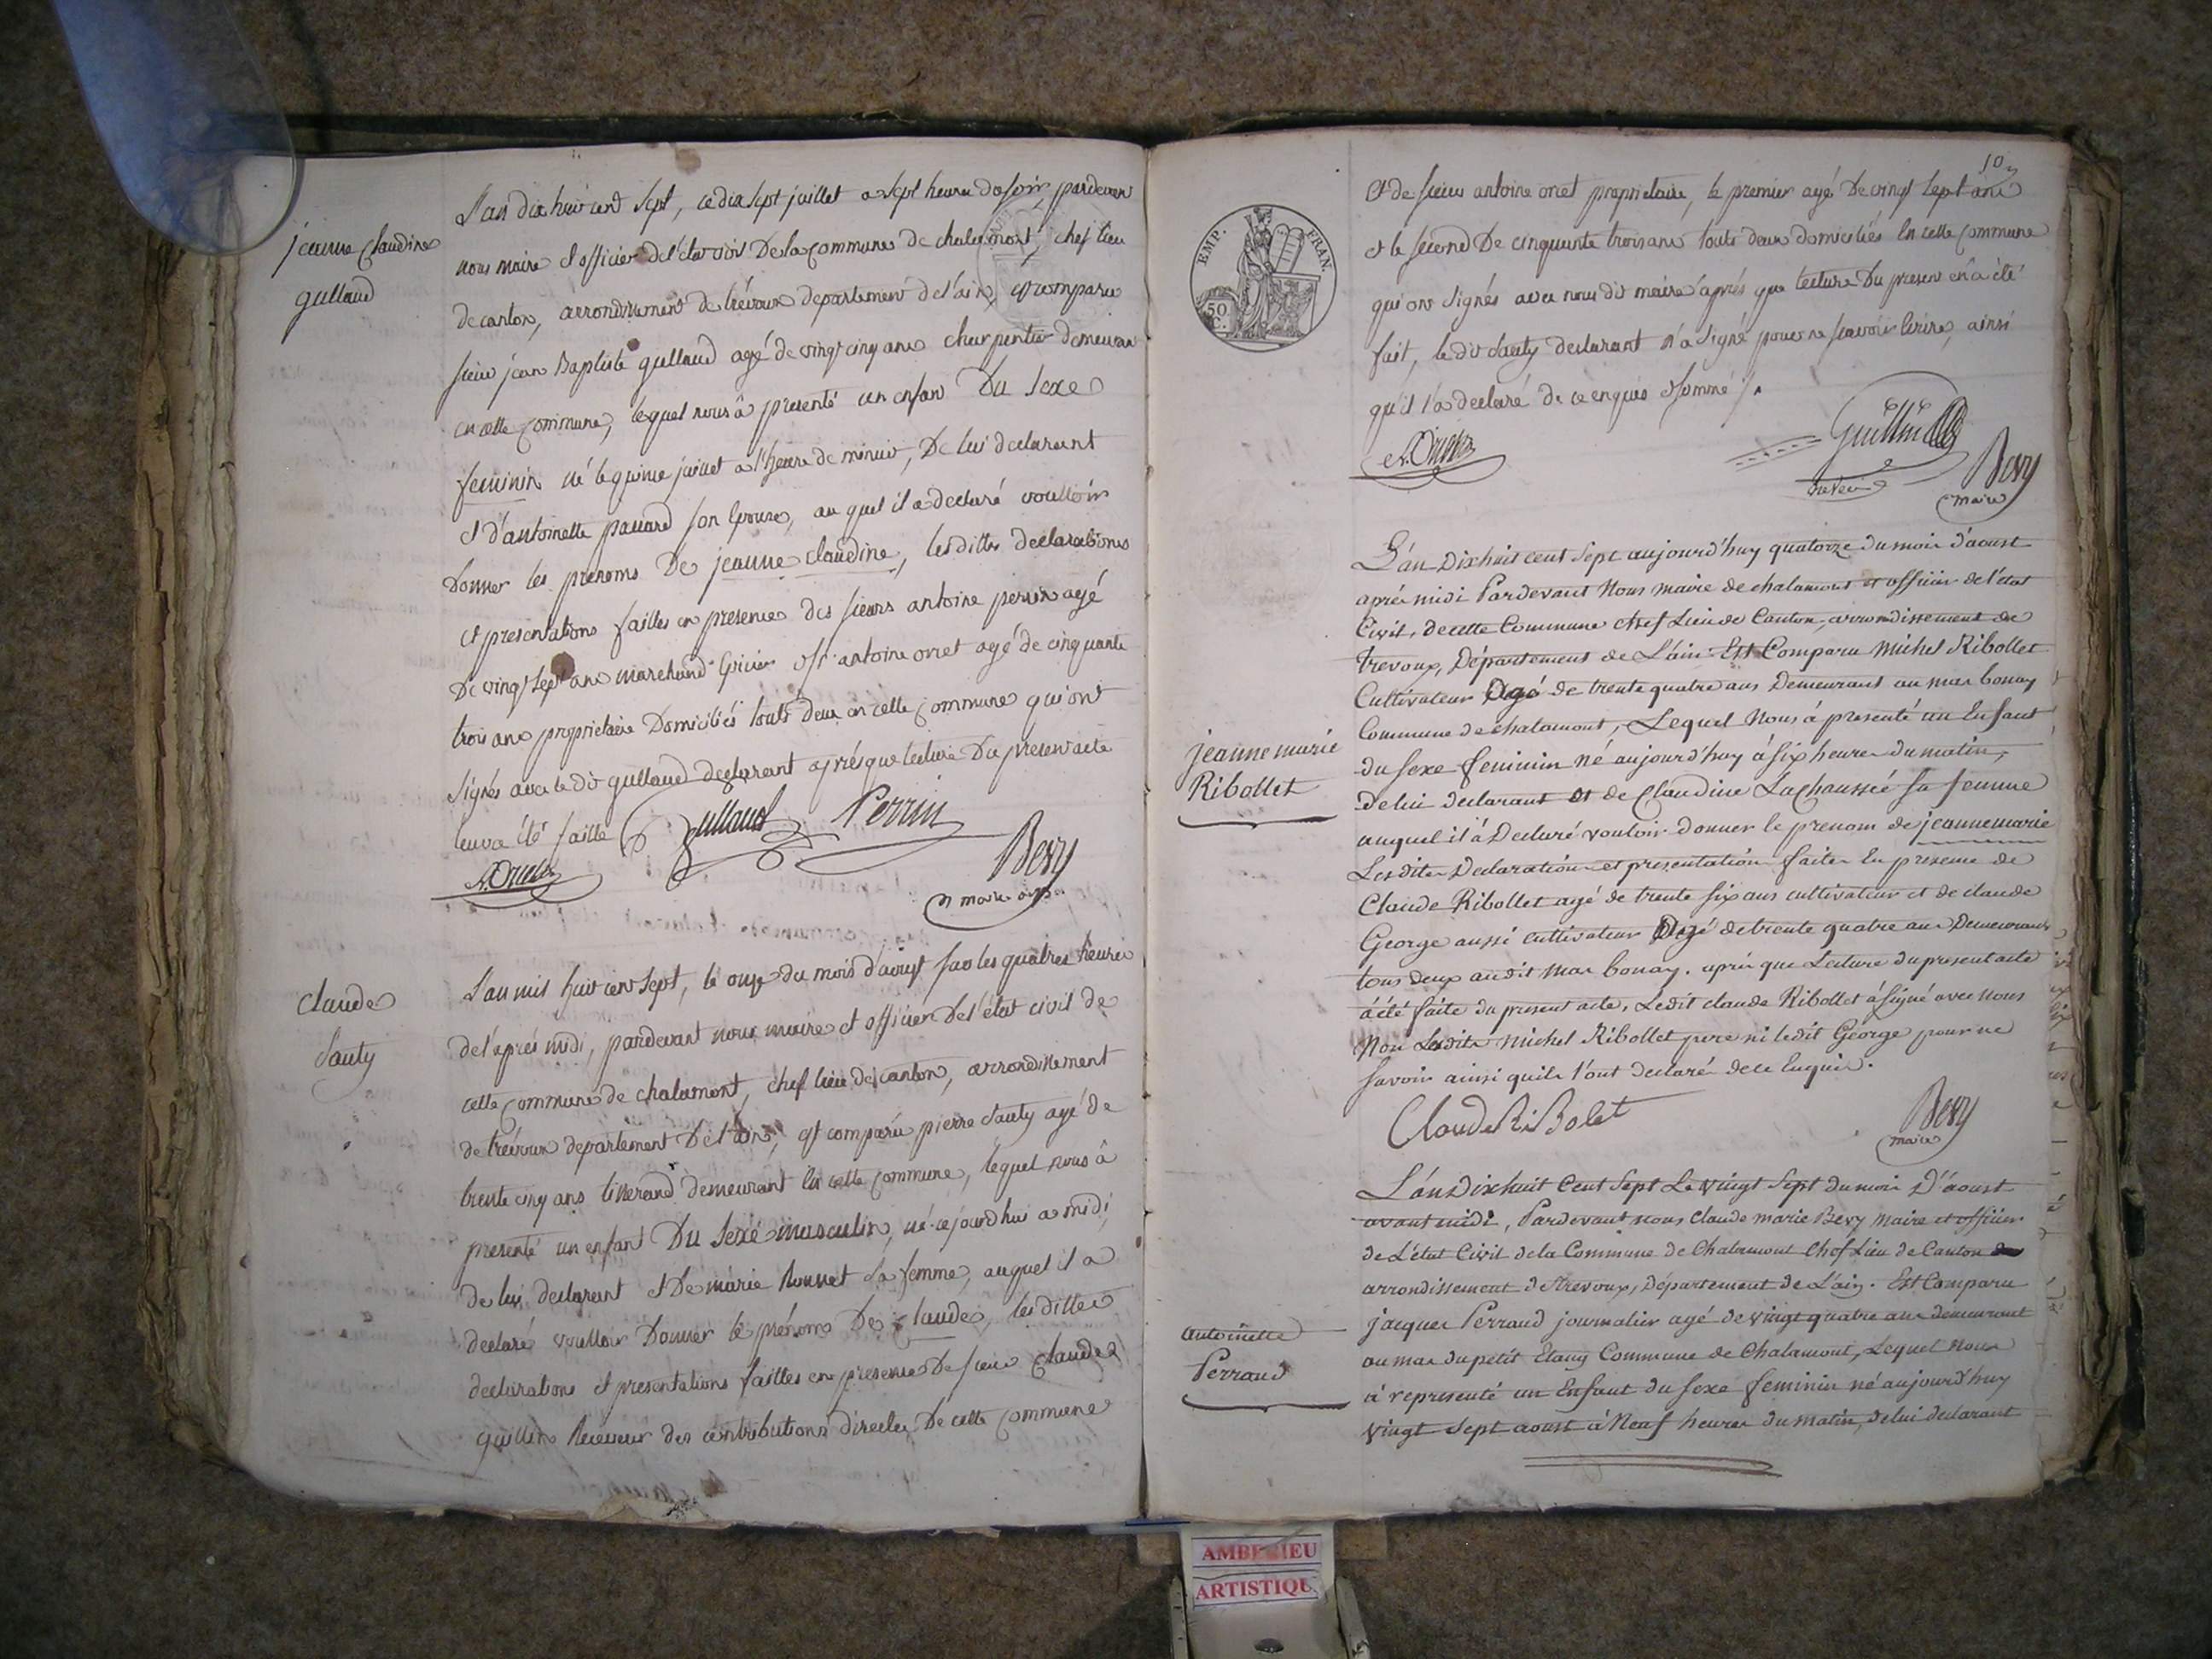 jeanne Claudine
gullaud
L'an dix huit cent sept, ce dix sept juillet a sept heures du soir, pardevan
nous maire et officier de l'etat civil De la commune de chalamont, chef lieu
de canton, arrondissement de trévoux departement de l'ain, est comparu
sieur jean Baptiste gullaud agé de vingt cinq ans charpentier demeuran
en cette commune, lequel nous à presenté un enfan Du sexe
feminin né le quinze juillet a l'heure de minuit, De lui declarant
et d'antoinette paccard son Epouse, au quel il a declaré voulloir
Donner les prenoms De jeanne claudine, lesdittes declarations
et presentations faittes en presence des sieurs antoine perrin agé
De vingt sept ans marchand Epicier et sr. antoine orcet agé de cinquante
trois ans proprietaire Domiciliés touts deux en cette commune qui ont
signés avec le dit gullaud declarant aprés que lecture Du present acte
leur a été faitte
Gullaud
Perrin
A. Orcet
Bevy
maire
claude
Sauty
L'an mil huit cent sept, le onze du mois d'aoust sur les quatres heures
de l'aprés midi, pardevant nous maire et officier De l'état civil de
cette commune de chalamont, chef lieu de canton, arrondissement
de trévoux departement De l'ain, est comparu pierre Sauty agé de
trente cinq ans tisserand demeurant en cette commune, lequel nous à
presenté un enfant Du sexe masculin, né cejourdhui a midi,
de lui declarant et De marie bonnet sa femme, auquel il a
declaré voulloir Donner le prénoms De claude, lesdittes
declarations et presentations faittes en presence De sieur claude
guillin Receveur des contributions directes De cette commune
10
EMP. FRAN.
50 C.
et de sieur antoine orcet proprietaire, le premier agé De vingt sept ans
et le second De cinquante trois ans touts deux domiciliés en cette commune
qui ont signés avec nous dit maire aprés que lecture Du present en a été
fait, le dit Sauty declarant n'a signé pour ne scavoir Ecrire, ainsi
qu'il l'a declaré de ce enquis et sommé ./.
A. Orcet
Guillin
Bevy
maire
jeanne marie
Ribollet
L'an Dixhuit cent Sept aujourd'huy quatorze du mois d'aoust
aprés midi Pardevant Nous maire de chalamont et officier de l'état
Civil, de cette Commune chef Lieu de Canton, arrondissement de
trevoux, Département de L'ain. Est Comparu Michel Ribollet
Cultivateur Agé de trente quatre ans Demeurant au mas bonay
Commune de chalamont, Lequel Nous à presenté un Enfant
du sexe feminin né aujourd'huy à six heures du matin,
de lui declarant et de Claudine Lachaussée sa femme
auquel il à Declaré vouloir donner le prenom de jeanne marie
Lesdites Declaration et presentation faites En presence de
Claude Ribollet agé de trente six ans cultivateur et de claude
George aussi cultivateur Agé de trente quatre ans Demeurants
tous deux au dit mas bonay. aprés que Lecture du present acte
à été faite du present acte, Ledit claude Ribollet à signé avec nous
Non Lesdits Michel Ribollet pere ni ledit George pour ne
savoir ainsi quils l'ont declaré de ce Enquis.
Claude RiBolet
Bevy
maire
antoinette
Perraud
L'an Dixhuit Cent Sept Le vingt Sept du mois D'aoust
avant midi, Pardevant nous Claude marie Bevy maire et officier
de L'état Civil de la Commune de Chalamont Chef Lieu de Canton
arrondissement de trevoux, Département de L'ain. Est Comparu
jacques Perraud journalier agé de vingt quatre ans demeurant
au mas du petit Etang Commune de Chalamont, Lequel Nous
à representé un Enfant du sexe feminin né aujourd'huy
vingt Sept aoust à Neuf heures du matin, de lui declarant
AMBERIEU
ARTISTIQU